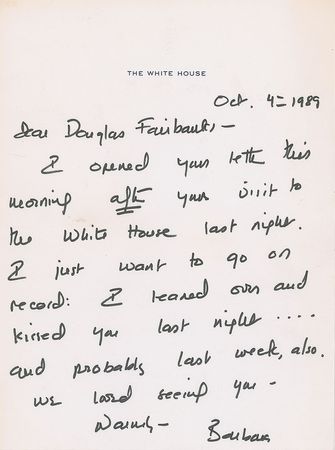 THE WHITE HOUSE
Oct. 4 - 1989
Dear Douglas Fairbanks -
I opened your letter this
morning after your visit to
the White House last night.
I just want to go on
record: I leaned over and
kissed you last night ....
and probably last week, also.
We loved seeing you -
Warmly -
Barbara